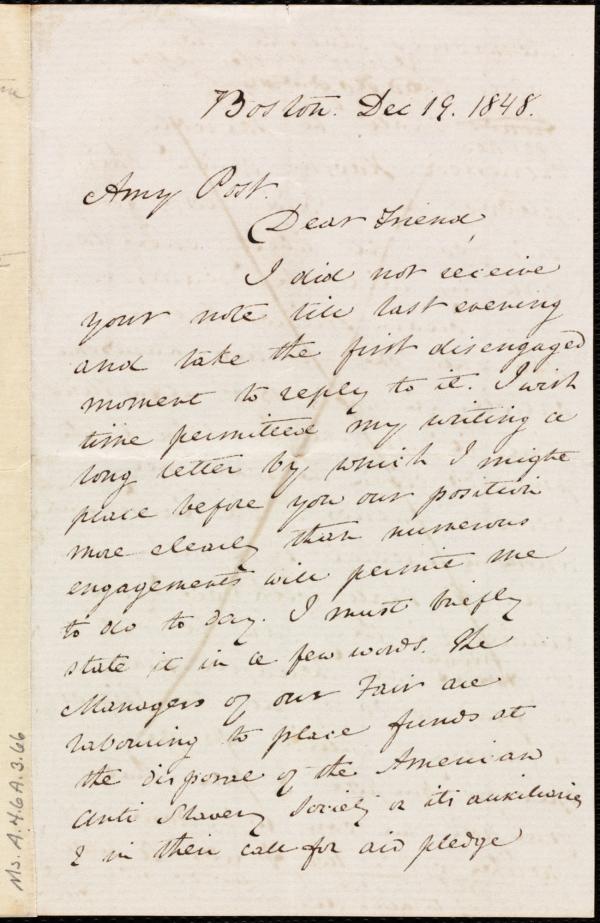 Boston. Dec 19. 1848.
Amy Post.
Dear Friend,
I did not receive
your note till last evening
and take the first disengaged
moment to reply to it. I wish
time permitted my writing a
long letter by which I might
place before you our position
more clearly than numerous
engagements will permit me
to do to day. I must briefly
state it in a few words. The
Managers of our Fair are
labouring to place funds at
the disposal of the American
Anti Slavery Society or its auxiliaries
& in their call for aid pledge
Ms. A.4.6A.3.66